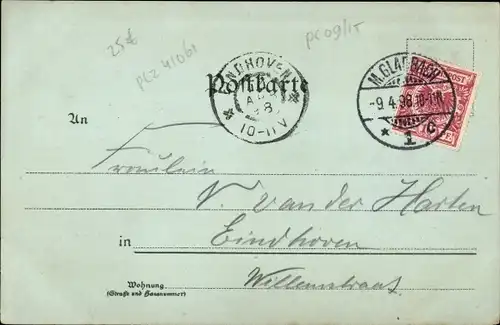 25€
PLZ 41061
PC 09/15
Postkarte
NDHOVEN
10-11V
M.GLADBACH
-9.4.98.10-11V.
* 1 c
POST
An
Fräulein
V. van der Harten
in Eindhoven
Willemstraat
Wohnung
(Straße und Hausnummer)